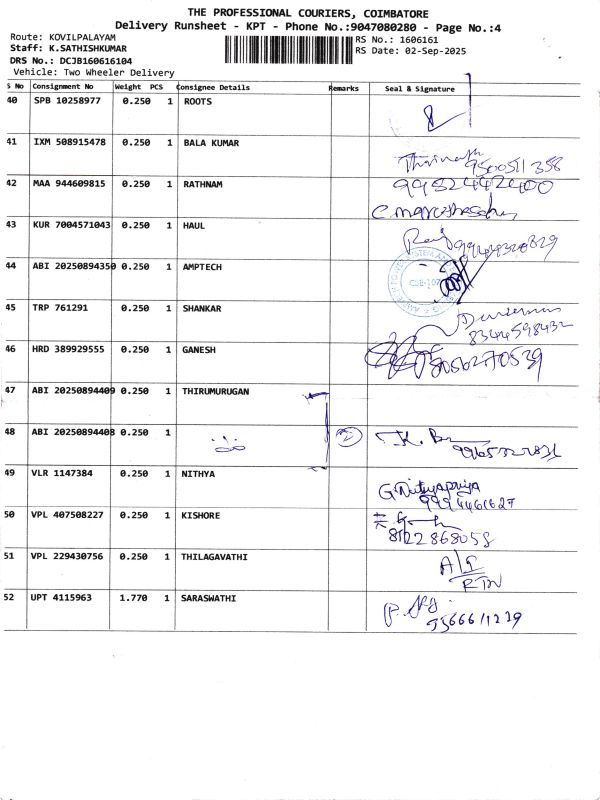 THE PROFESSIONAL COURIERS, COIMBATORE
Delivery Runsheet - KPT - Phone No.:9047080280 - Page No.:4
Route: KOVILPALAYAM
RS No.: 1606161
Staff: K.SATHISHKUMAR
RS Date: 02-Sep-2025
DRS No.: DCJB160616104
Vehicle: Two Wheeler Delivery
S No Consignment No Weight PCS Consignee Details Remarks Seal & Signature
40 SPB 10258977 0.250 1 ROOTS
41 IXM 508915478 0.250 1 BALA KUMAR
9500511358
42 MAA 944609815 0.250 1 RATHNAM
9952442400
43 KUR 7004571043 0.250 1 HAUL
44 ABI 20250894350 0.250 1 AMPTECH
45 TRP 761291 0.250 1 SHANKAR
8344598432
46 HRD 389929555 0.250 1 GANESH
8056270539
47 ABI 20250894409 0.250 1 THIRUMURUGAN
48 ABI 20250894408 0.250 1
2
49 VLR 1147384 0.250 1 NITHYA
G.Nithyapriya
9994461627
50 VPL 407508227 0.250 1 KISHORE
8122868058
51 VPL 229430756 0.250 1 THILAGAVATHI
RTN
52 UPT 4115963 1.770 1 SARASWATHI